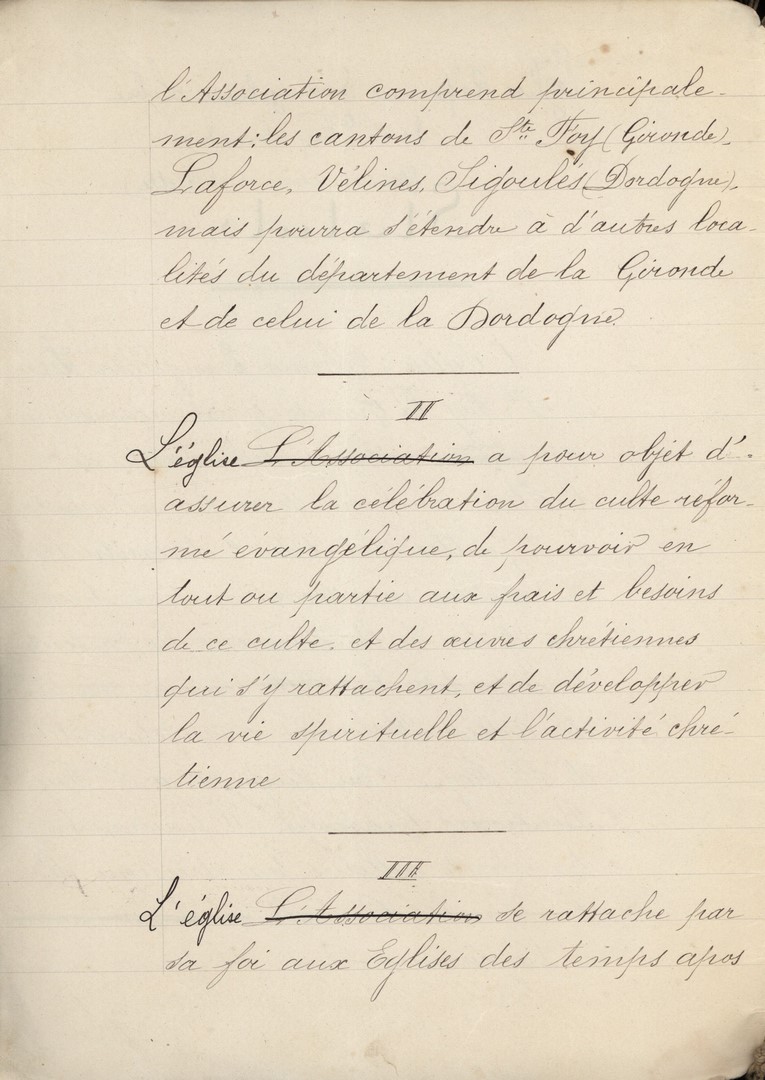 l'Association comprend principale-
ment; les cantons de Ste Foy (Gironde),
Laforce, Vélines, Sigoulès (Dordogne),
mais pourra s'étendre à d'autres loca-
lités du département de la Gironde
et de celui de la Dordogne.
II
L'église L'Association a pour objet d'-
assurer la célébration du culte réfor-
mé évangélique, de pourvoir en
tout ou partie aux frais et besoins
de ce culte et des œuvres chrétiennes
qui s'y rattachent, et de développer
la vie spirituelle et l'activité chré-
tienne
III
L'église L'Association se rattache par
sa foi aux Eglises des temps apos